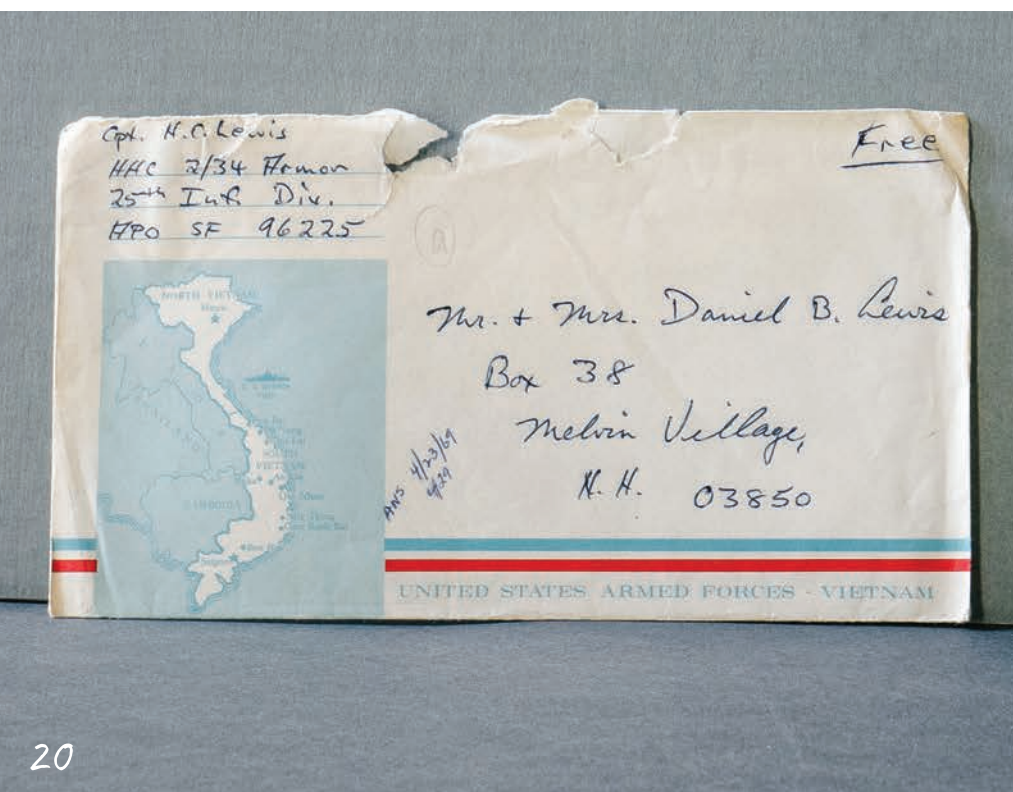 Cpt. H.C. Lewis
HHC 2/34 Armor
25th Inf. Div.
APO SF 96225
Free
Mr. + Mrs. Daniel B. Lewis
Box 38
Melvin Village,
N.H. 03850
ANS 4/23/69
4/29
NORTH VIETNAM
Hanoi
THAILAND
SOUTH
VIETNAM
CAMBODIA
UNITED STATES ARMED FORCES - VIETNAM
20